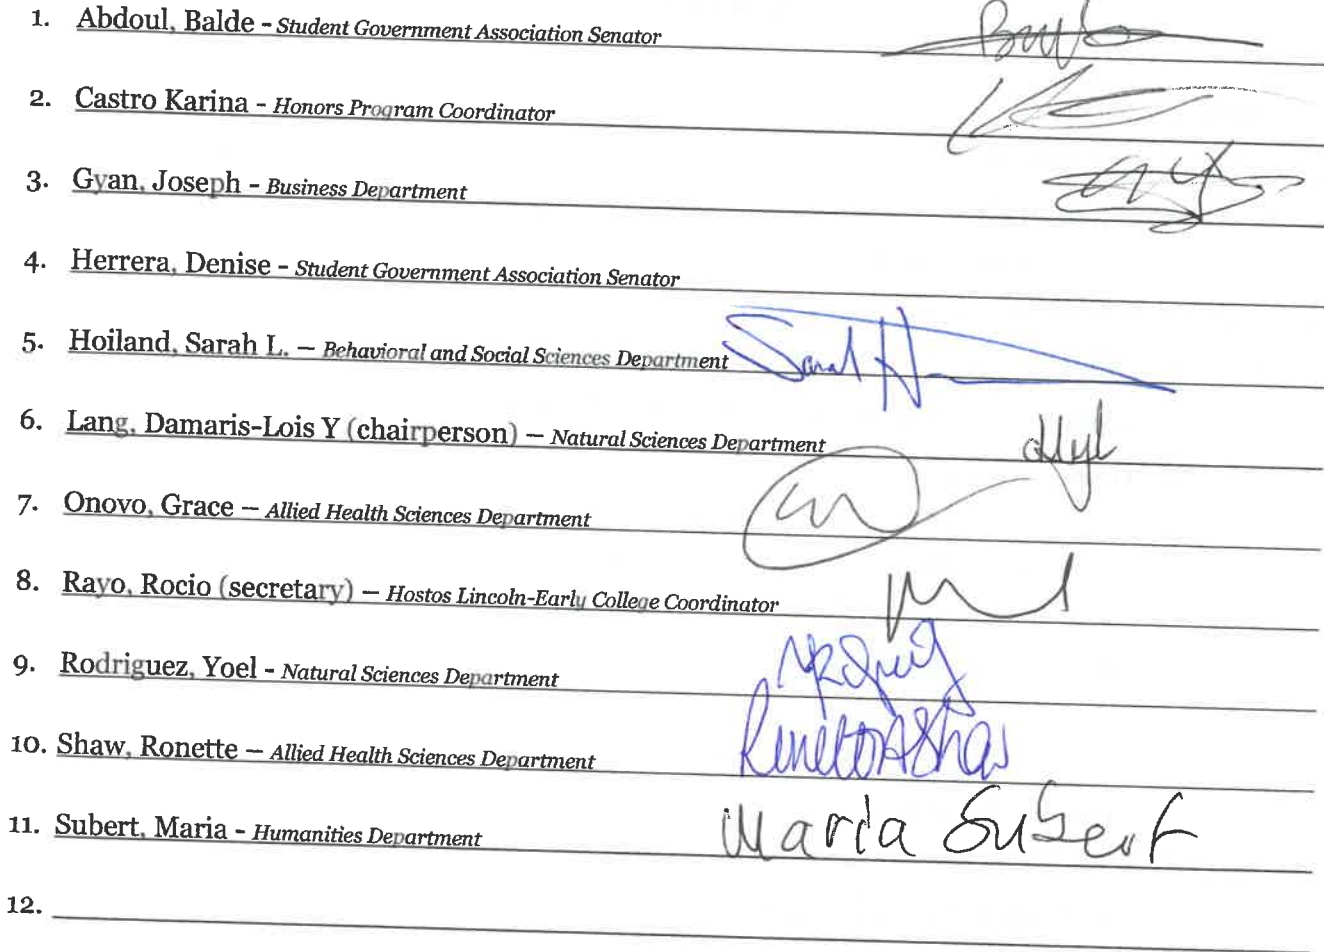 1. Abdoul, Balde - Student Government Association Senator
2. Castro Karina - Honors Program Coordinator
3. Gyan, Joseph - Business Department
4. Herrera, Denise - Student Government Association Senator
5. Hoiland, Sarah L. – Behavioral and Social Sciences Department Sarah H
6. Lang, Damaris-Lois Y (chairperson) – Natural Sciences Department
7. Onovo, Grace – Allied Health Sciences Department
8. Rayo, Rocio (secretary) – Hostos Lincoln-Early College Coordinator
9. Rodriguez, Yoel - Natural Sciences Department
10. Shaw, Ronette – Allied Health Sciences Department Ronette A Shaw
11. Subert, Maria - Humanities Department Maria Subert
12.